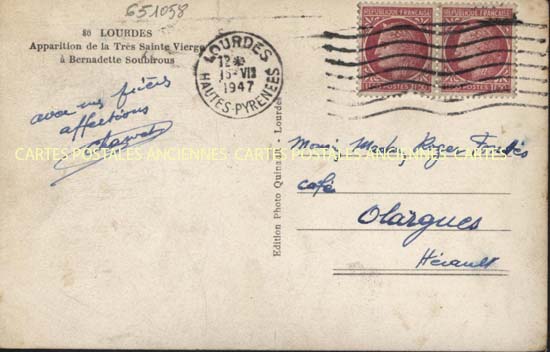 651058
80 LOURDES
Apparition de la Très Sainte Vierge
à Bernadette Soubirous
LOURDES
12
15-VII
1947
HAUTES-PYRENEES
RÉPUBLIQUE FRANÇAISE
POSTES
RÉPUBLIQUE FRANÇAISE
POSTES
avec nos
affections
CARTES POSTALES ANCIENNES CARTES POSTALES ANCIENNES CARTES POSTALES ANCIENNES
Edition Photo Quinault - Lourdes
Roger
café
Olargues
Hérault